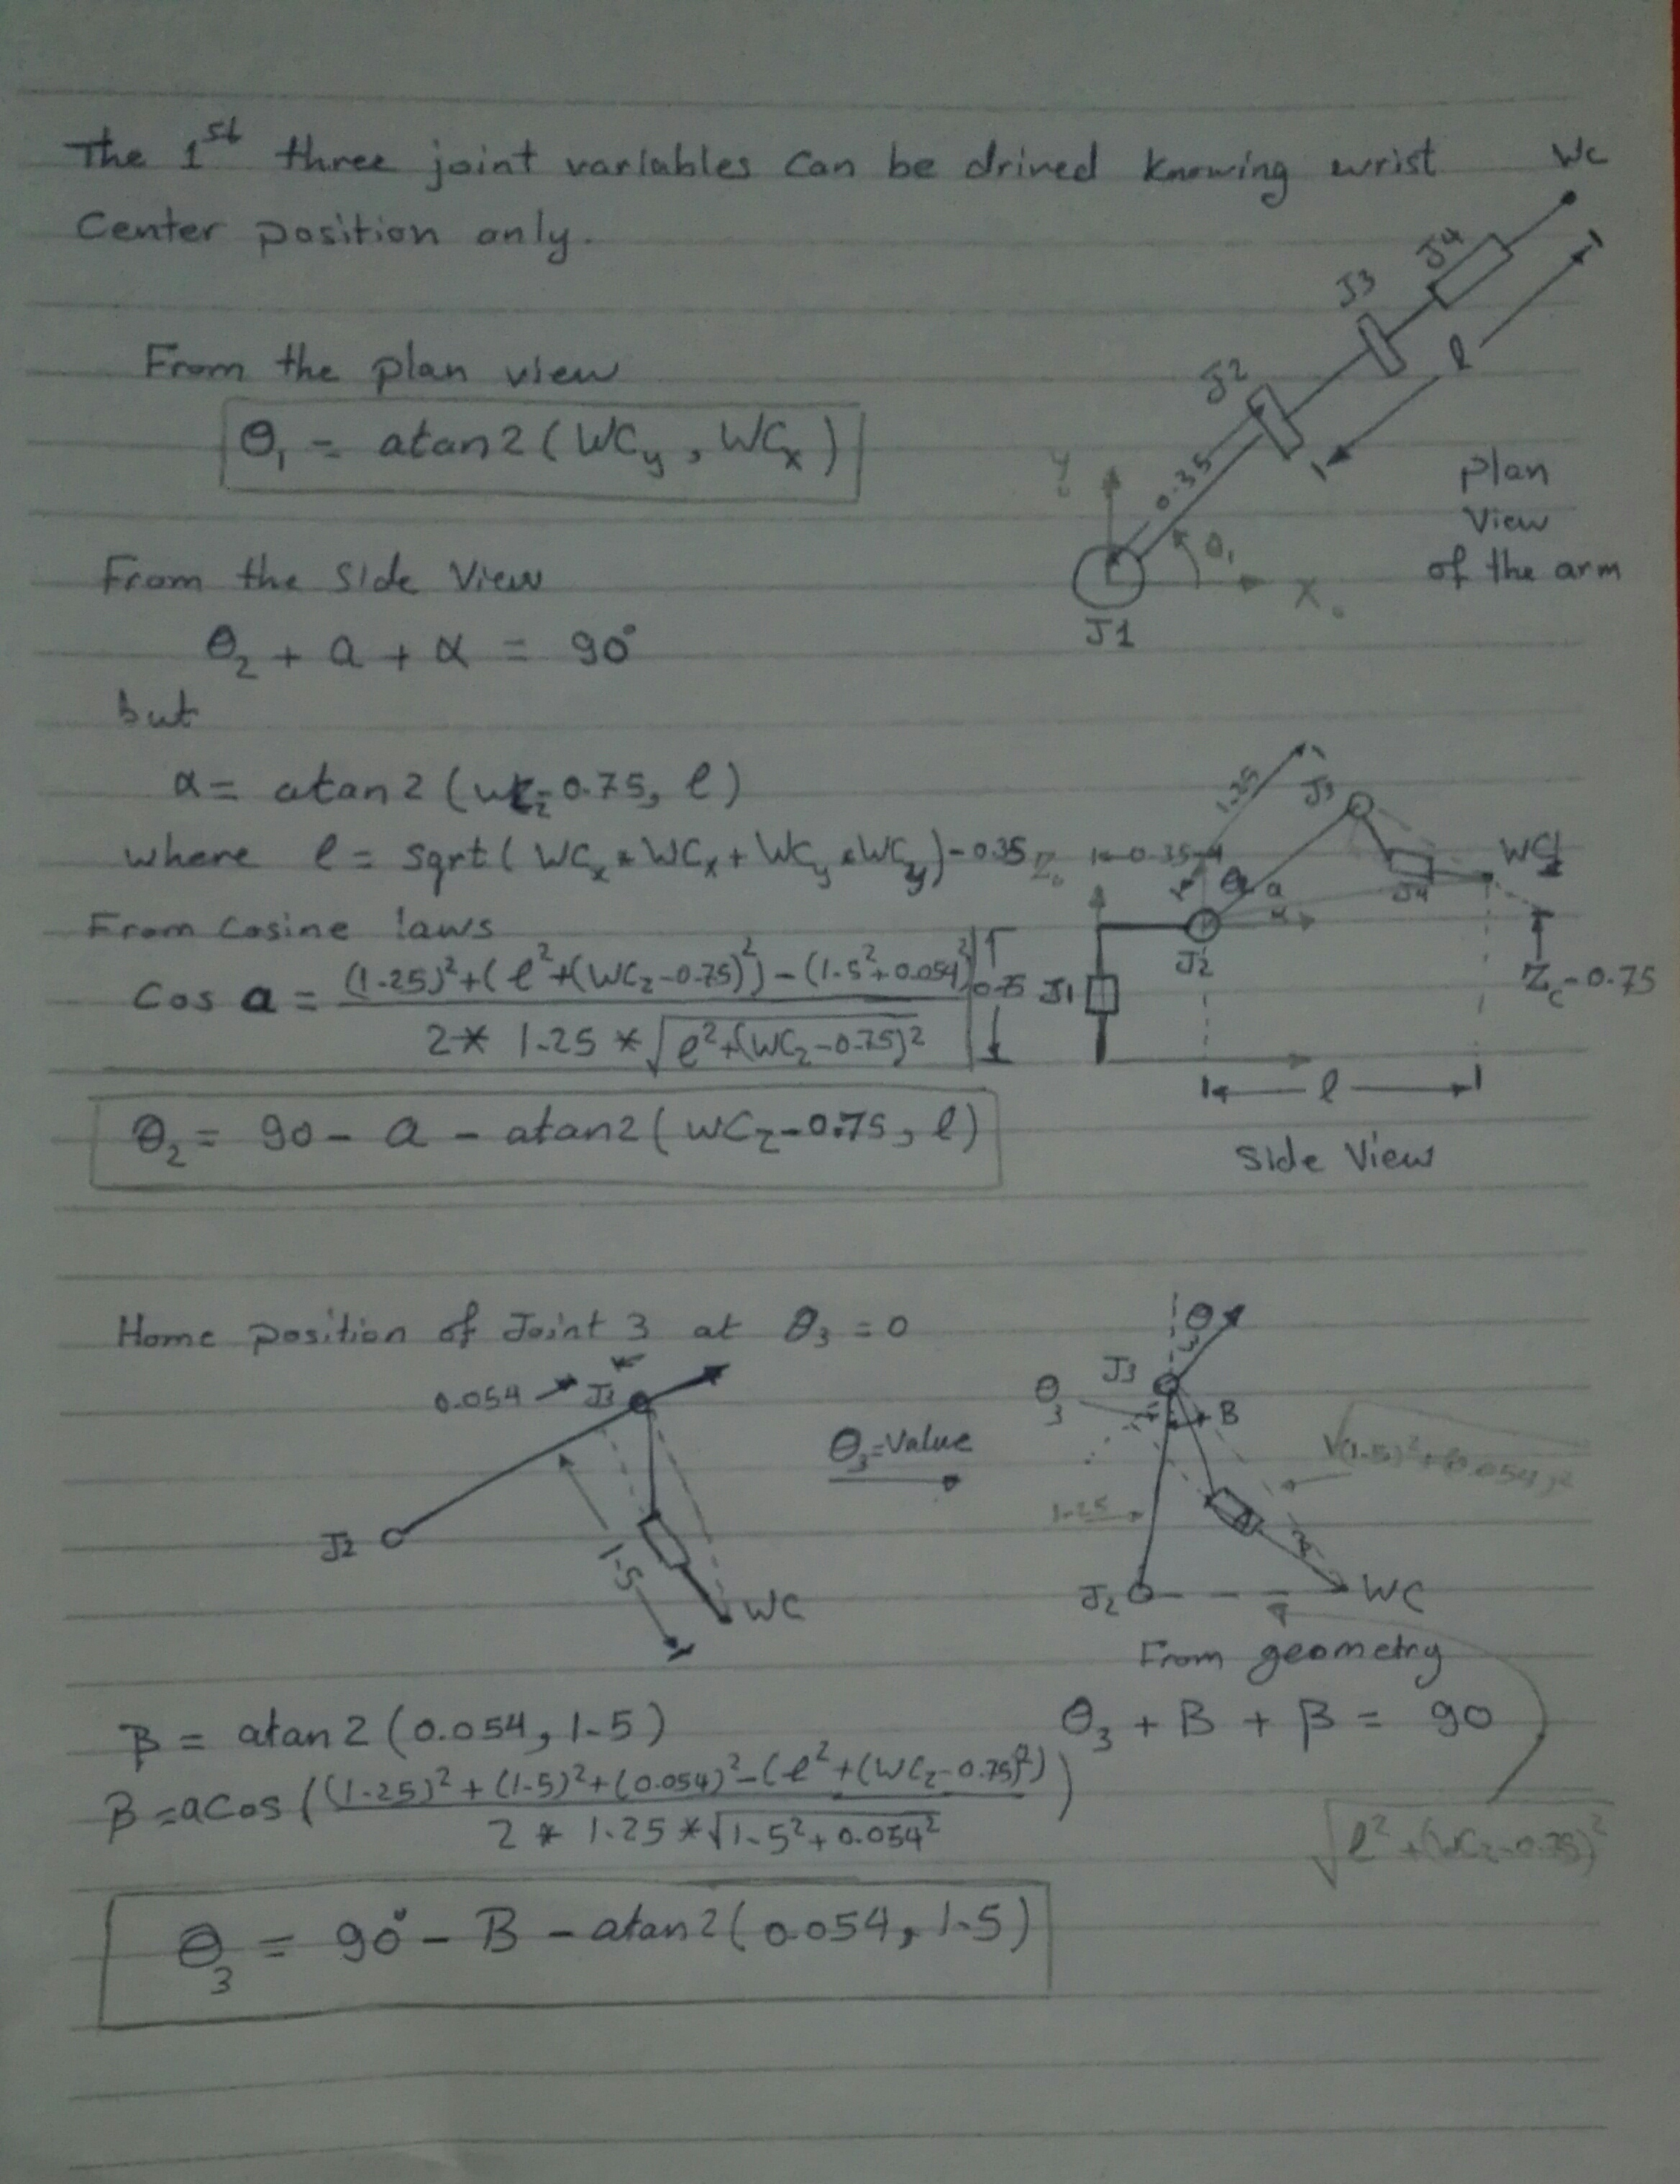 The 1st three joint variables can be drived knowing wrist
Center position only.
WC
J4
J3
J2
l
0.35
Y₀
θ₁
X₀
J1
plan
View
of the arm
From the plan view
θ₁ = atan2(WCy, WCx)
From the side View
θ₂ + a + α = 90°
but
α = atan2(WCz-0.75, l)
where l = sqrt(WCx*WCx + WCy*WCy)-0.35
From Cosine laws
Cos a = ((1.25)² + (l² + (WCz-0.75)²) - (1.5²+0.054²)) / (2* 1.25 * √(l²+(WCz-0.75)²))
θ₂ = 90 - a - atan2(WCz-0.75, l)
1.25
J3
Z₀
0.35
WC
θ₂
a
α
J4
J2
0.75
J1
Zc-0.75
l
Side View
Home position of Joint 3 at θ₃ = 0
0.054
J3
J2
1.5
WC
θ₃=Value
θ₃
J3
θ₃
B
√(1.5)²+(0.054)²
1.25
β
J2
WC
From geometry
θ₃ + B + β = 90
√(l²+(WCz-0.75)²)
β = atan2(0.054, 1.5)
B = acos(((1.25)² + (1.5)² + (0.054)² - (l² + (WCz-0.75)²)) / (2 * 1.25 * √(1.5²+0.054²)))
θ₃ = 90° - B - atan2(0.054, 1.5)